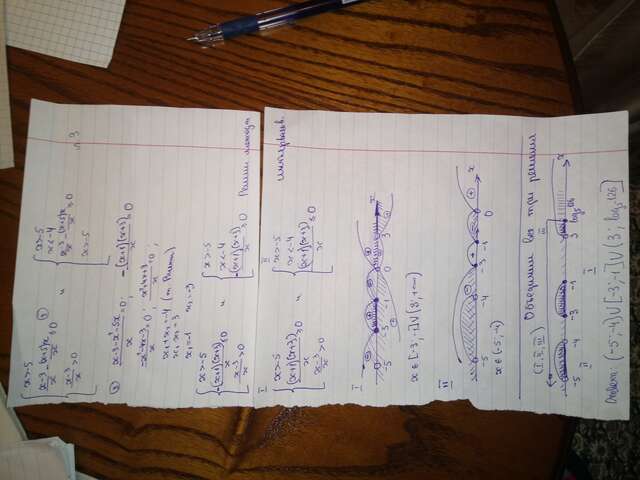 x>-5
(x-3)/x - (x+5)x/x ≤ 0 ②
(x-3)/x > 0
и
x>-5
x<-4
(x-3)/x - (x+5)x/x ≥ 0
x>-5
n.3
② (x-3-x²-5x)/x = 0; -(x+1)(x+3)/x = 0
(-x²-4x-3)/x = 0; (x²+4x+3)/x = 0;
x₁+x₂=-4 (т. Виета)
x₁x₂=3
x₁=-1 x₂=-3
x>-5
-(x+1)(x+3)/x ≤ 0
(x-3)/x > 0
и
x>-5
x<-4
-(x+1)(x+3)/x ≥ 0
Решим методом
интервалов.
I
x>-5
(x+1)(x+3)/x ≥ 0
(x-3)/x > 0
и
II
x>-5
x<-4
(x+1)(x+3)/x ≤ 0
I
- + - + +
-5 -3 -1 0 3 x
+ - +
x ∈ [-3;-1] ∪ (3;+∞)
II
- + - +
-5 -4 -3 -1 0 x
x ∈ (-5;-4)
Объединим все три решения
(I, II, III) III
-5 -4 -3 -1 3 log₅126 x
II I
Ответ: (-5;-4) ∪ [-3;-1] ∪ (3; log₅126]